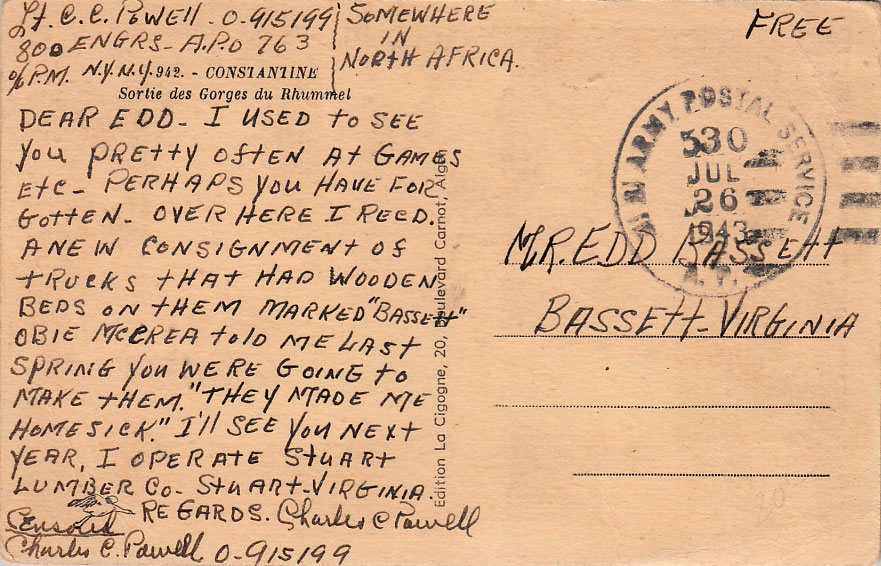 Lt. C. C. POWELL - O-915199
800 ENGRS - A.P.O 763
% P.M. N.Y. N.Y.
942. - CONSTANTINE
Sortie des Gorges du Rhummel
SOMEWHERE
IN
NORTH AFRICA.
FREE
DEAR EDD - I USED to SEE
YOU PREttY OftEN At GAMES
Etc - PERHAPS YOU HAVE FOR
GOttEN - OVER HERE I RECD.
A NEW CONSIGNMENT OF
tRUCKS tHAt HAD WOODEN
BEDS ON tHEM MARKED "BASSEtt"
OBIE McCREA tOlD ME LASt
SPRING YOU WERE GOING tO
MAKE tHEM. "tHEY MADE ME
HOMESICK." I'll SEE YOU NEXt
YEAR, I OPERAtE StUARt
LUMBER CO - StUARt - VIRGINIA.
REGARDS. Charles C Powell
Censored
Charles C. Powell O-915199
Edition La Cigogne, 20, Boulevard Carnot, Alger
ARMY POSTAL SERVICE
530
JUL
26
1943
MR. EDD BASSEtt
BASSEtt - VIRGINIA